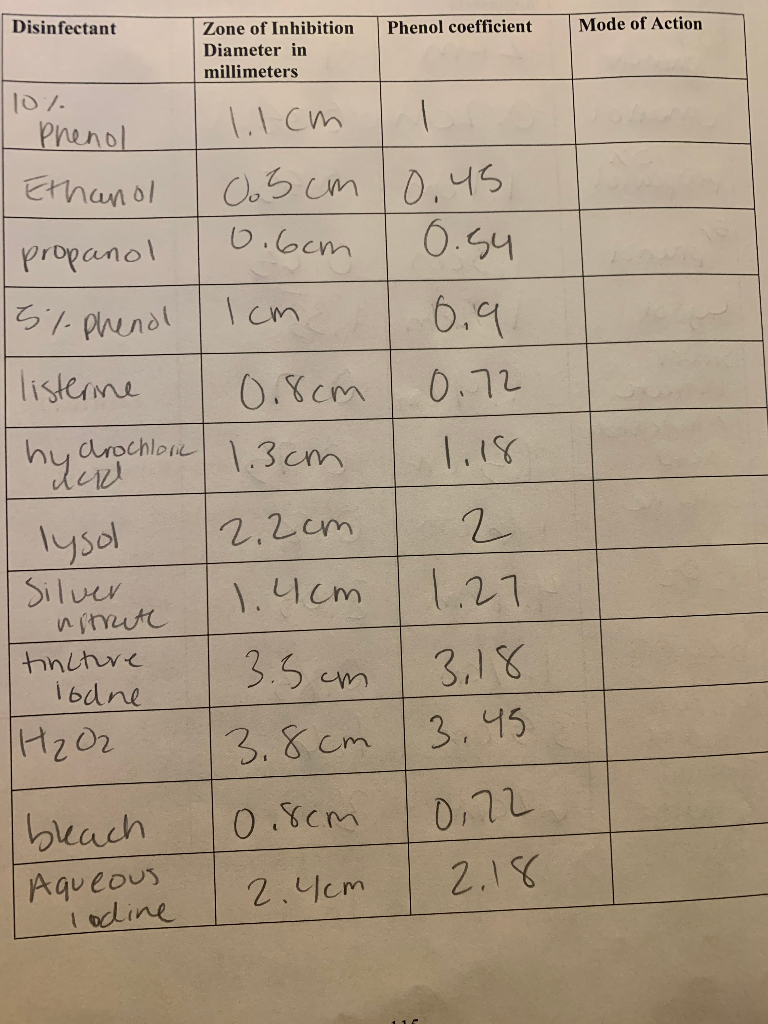 Disinfectant
Zone of Inhibition
Diameter in
millimeters
Phenol coefficient
Mode of Action
10%
Phenol
1.1 cm
1
Ethanol
0.5 cm
0.45
propanol
0.6cm
0.54
5% phenol
1 cm
0.9
listerine
0.8cm
0.72
hydrochloric
acid
1.3cm
1.18
lysol
2.2cm
2
Silver
nitrate
1.4cm
1.27
tincture
iodne
3.5 cm
3.18
H2O2
3.8cm
3.45
bleach
0.8cm
0.72
Aqueous
iodine
2.4cm
2.18